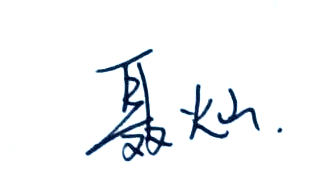 聂灿.